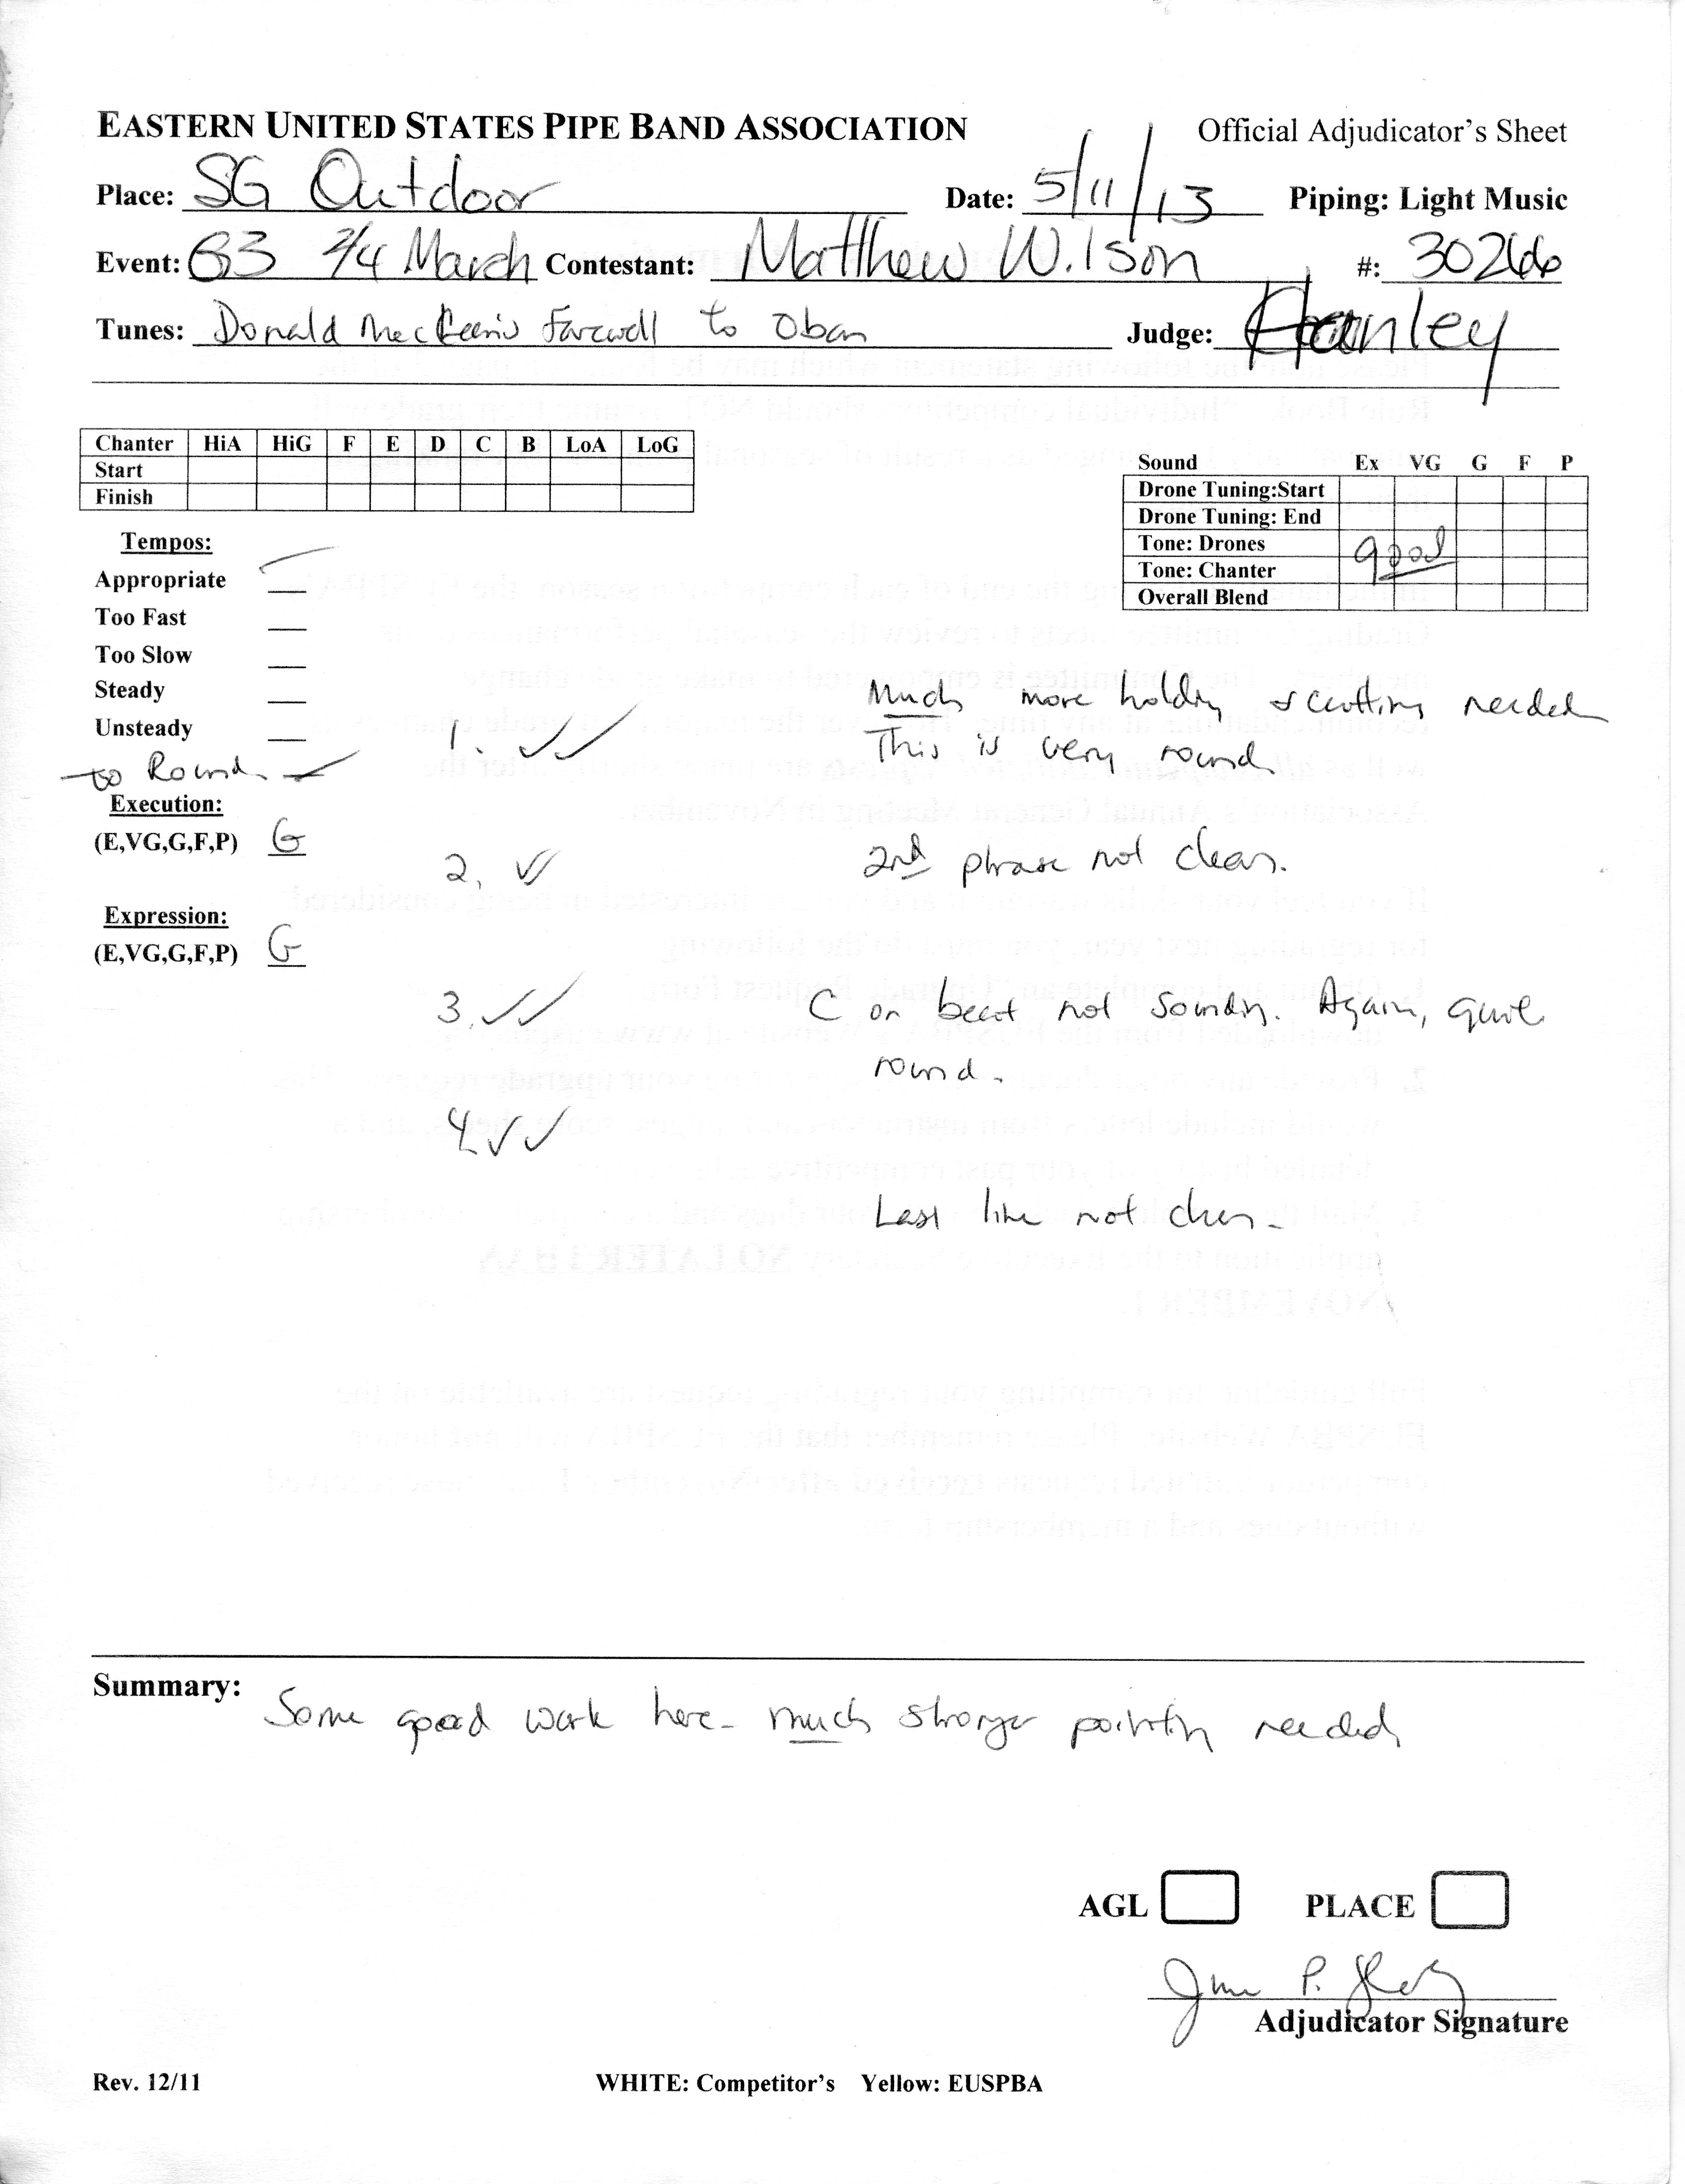 EASTERN UNITED STATES PIPE BAND ASSOCIATION Official Adjudicator's Sheet
Place: SG Outdoor Date: 5/11/13 Piping: Light Music
Event: G3 2/4 March Contestant: Matthew Wilson #: 30266
Tunes: Donald Farewell to Oban Judge: Hanley
Chanter HiA HiG F E D C B LoA LoG
Start
Finish
Sound Ex VG G F P
Drone Tuning:Start
Drone Tuning: End
Tone: Drones good
Tone: Chanter
Overall Blend
Tempos:
Appropriate
Too Fast
Too Slow
Steady
Unsteady
to Round ✓
Execution:
(E,VG,G,F,P) G
Expression:
(E,VG,G,F,P) G
1. ✓✓ Much more holding + cutting needed
This is very round.
2. ✓✓ 2nd phrase not clean.
3. ✓✓ C on beat not sounding. Again, quite
round.
4. ✓✓
Last line not clean.
Summary: Some good work here - much stronger pointing needed
AGL PLACE
Adjudicator Signature
Rev. 12/11 WHITE: Competitor's Yellow: EUSPBA